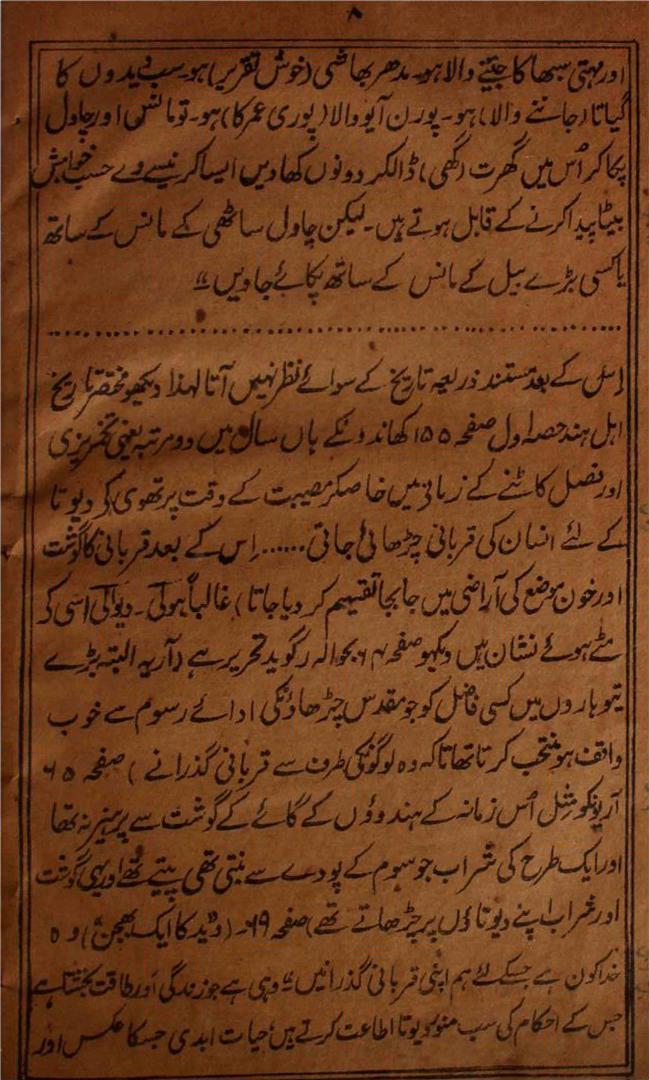 ۸
اور بہتی سبھا کا جیتنے والا ہو۔ مدھر بھاشی (خوش تقریر) ہو۔ سب بیدوں کا
گیاتا (جاننے والا) ہو۔ پورن آیو والا (پوری عمر کا) ہو۔ تو مانس اور چاول
پکا کر اُس میں گھرت (گھی) ڈالکر دونوں کھاویں ایسا کرنیسے وے حسب خواہش
بیٹا پیدا کرنے کے قابل ہوتے ہیں۔ لیکن چاول ساٹھی کے مانس کے ساتھ
یا کسی بڑے بیل کے مانس کے ساتھ پکائے جاویں"
اِس کے بعد مستند ذریعہ تاریخ کے سوائے نظر نہیں آتا لہذا دیکھو مختصر تاریخ
اہل ہند حصہ اول صفحہ ۱۵۵ کھاندونکے ہاں سال میں دو مرتبہ یعنی تخمریزی
اور فصل کاٹنے کے زمانہ میں خاصکر مصیبت کے وقت پرتھوی کے دیوتا
کے لئے انسان کی قربانی چڑھائی جاتی ...... اِس کے بعد قربانی کا گوشت
اور خون موضع کی آراضی میں جابجا تقسیم کر دیا جاتا) غالباً ہولی۔ دیوالی اسی کے
مٹے ہوئے نشان ہیں دیکھو صفحہ ۶۴ بحوالہ رگوید تحریر ہے (آریہ البتہ بڑے
تیوہاروں میں کسی فاضل کو جو مقدس چڑھاؤنکی ادائے رسوم سے خوب
واقف ہو منتخب کرتا تھا تاکہ وہ لوگونکی طرف سے قربانی گذرانے) صفحہ ۶۵
آریونکو مثل اُس زمانہ کے ہندوؤں کے گائے کے گوشت سے پرہیز نہ تھا
اور ایک طرح کی شراب جو سوم کے پودے سے بنتی تھی پیتے تھے اور یہی گوشت
اور شراب اپنے دیوتاؤں پر چڑھاتے تھے) صفحہ ۶۹۔ (وید کا ایک بھجن) وہ
خدا کون ہے جسکے لئے ہم اپنی قربانی گذرانیں" وہی ہے جو زندگی اور طاقت بخشتا ہے
جس کے احکام کی سب منور دیوتا اطاعت کرتے ہیں؛ حیات ابدی جسکا عکس اور